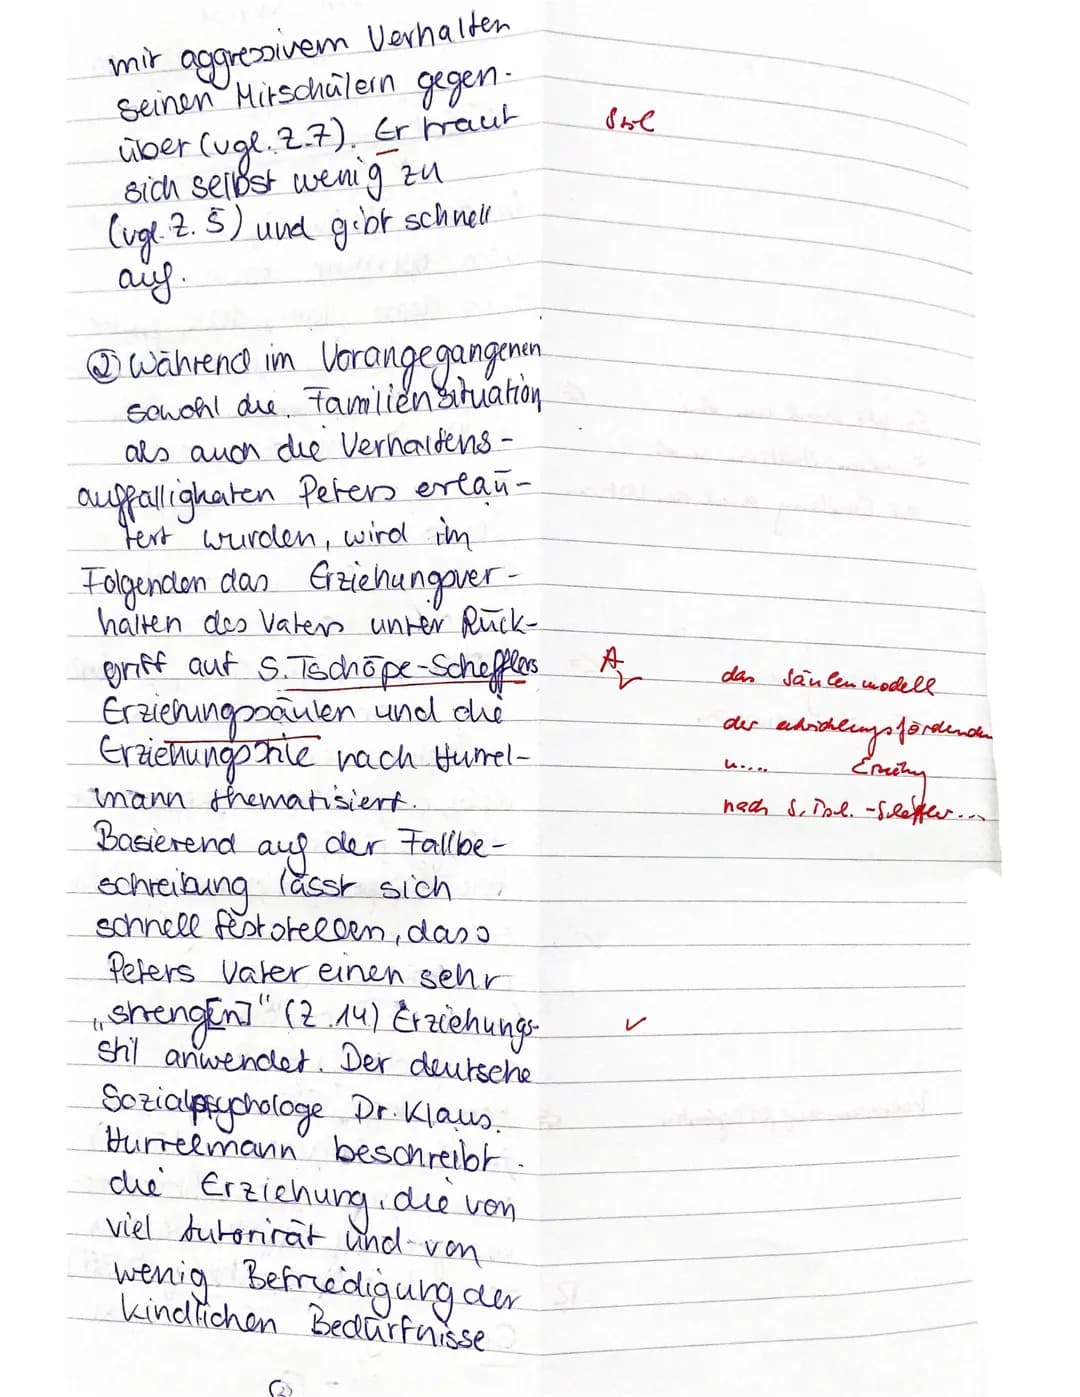 mit aggressivem Verhalten
seinen Mitschülern gegen-
über (vgl. Z.7). Er traut
sich selbst wenig zu
(vgl. Z. 5) und gibt schnell
auf.
② Während im Vorangegangenen
sowohl die Familiensituation
als auch die Verhaltens-
auffälligkeiten Peters erläu-
tert wurden, wird im
Folgenden das Erziehungsver-
halten des Vaters unter Rück-
griff auf S. Tschöpe-Schefflers
Erziehungssäulen und die
Erziehungsstile nach Hurrel-
mann thematisiert.
Basierend auf der Fallbe-
schreibung lässt sich
schnell feststellen, dass
Peters Vater einen sehr
„streng[en]" (Z.14) Erziehungs-
stil anwendet. Der deutsche
Sozialpsychologe Dr. Klaus
Hurrelmann beschreibt
die Erziehung, die von
viel Autorität und von
wenig Befriedigung der
kindlichen Bedürfnisse
(2)
A
das Säulenmodell
der
u....
nach S.